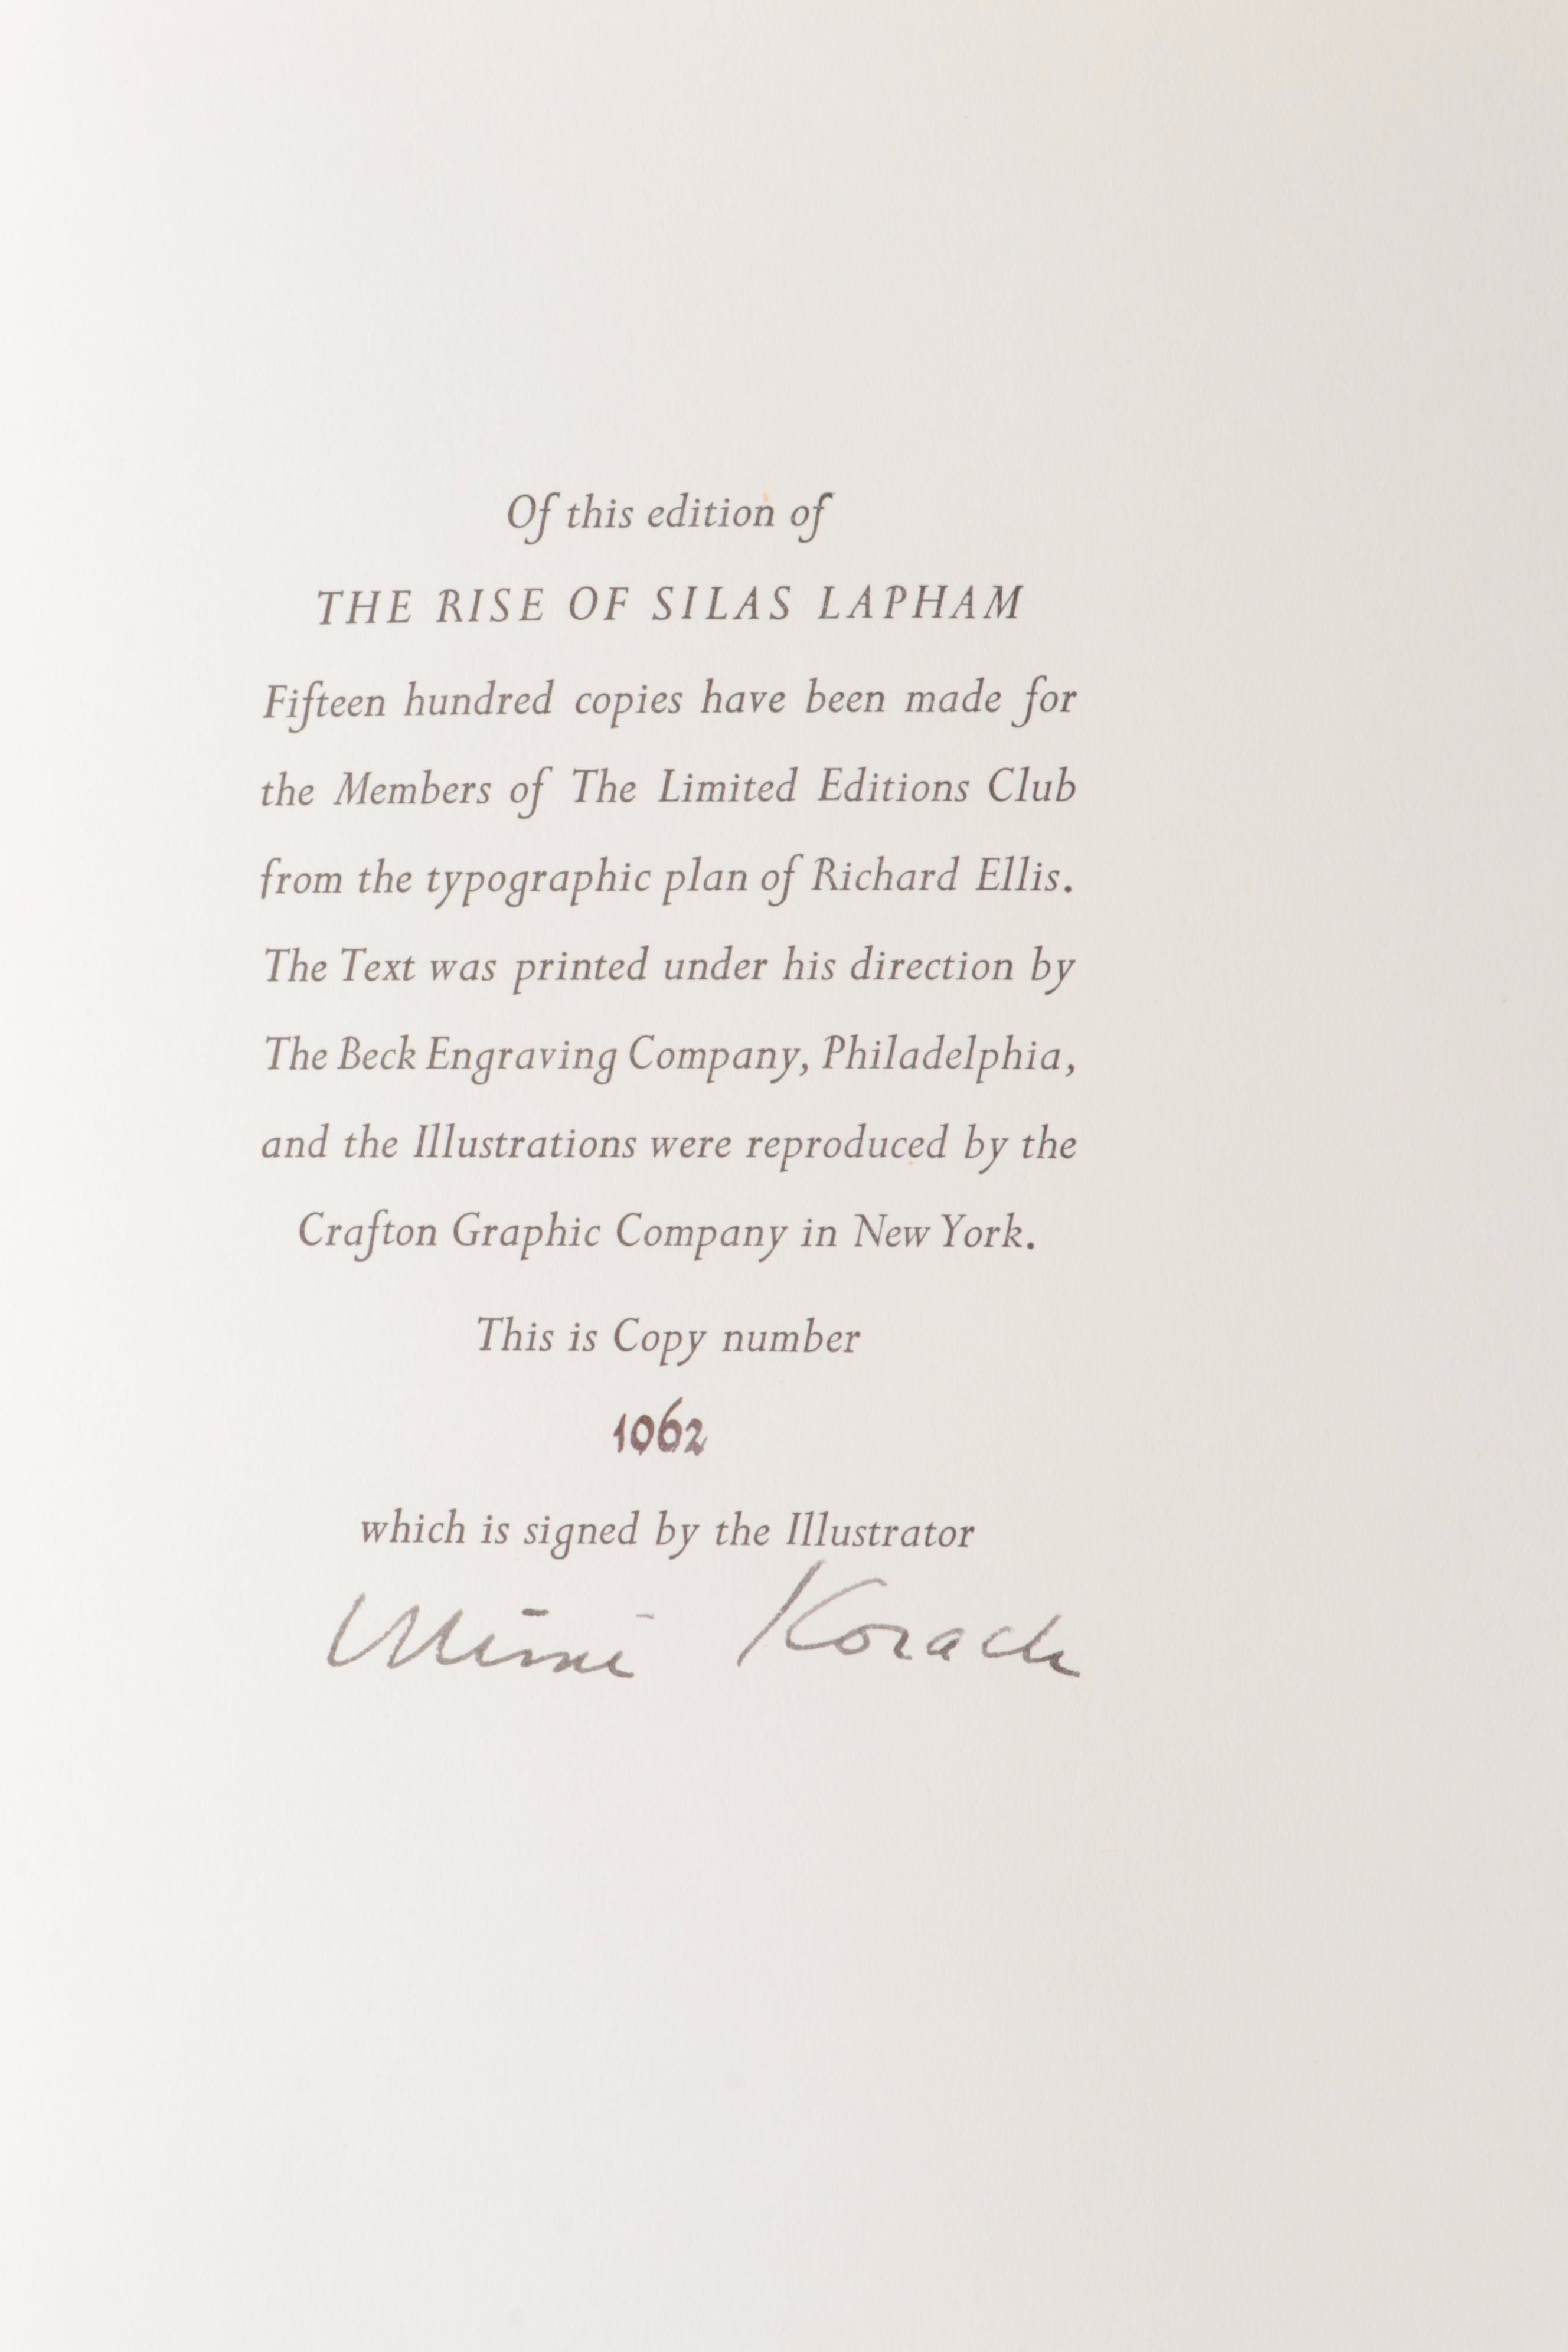 Of this edition of
THE RISE OF SILAS LAPHAM
Fifteen hundred copies have been made for
the Members of The Limited Editions Club
from the typographic plan of Richard Ellis.
The Text was printed under his direction by
The Beck Engraving Company, Philadelphia,
and the Illustrations were reproduced by the
Crafton Graphic Company in New York.
This is Copy number
1062
which is signed by the Illustrator
Mimi Korach